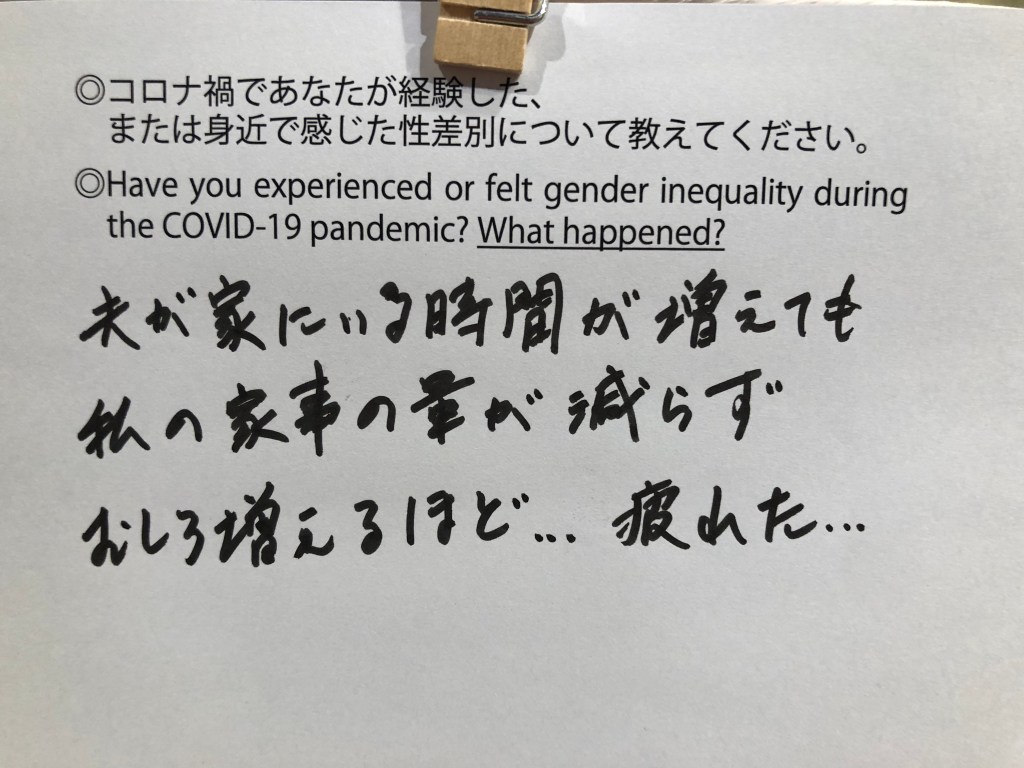 ◎コロナ禍であなたが経験した、
または身近で感じた性差別について教えてください。
◎Have you experienced or felt gender inequality during
the COVID-19 pandemic? What happened?
夫が家にいる時間が増えても
私の家事の量が減らず
むしろ増えるほど... 疲れた...